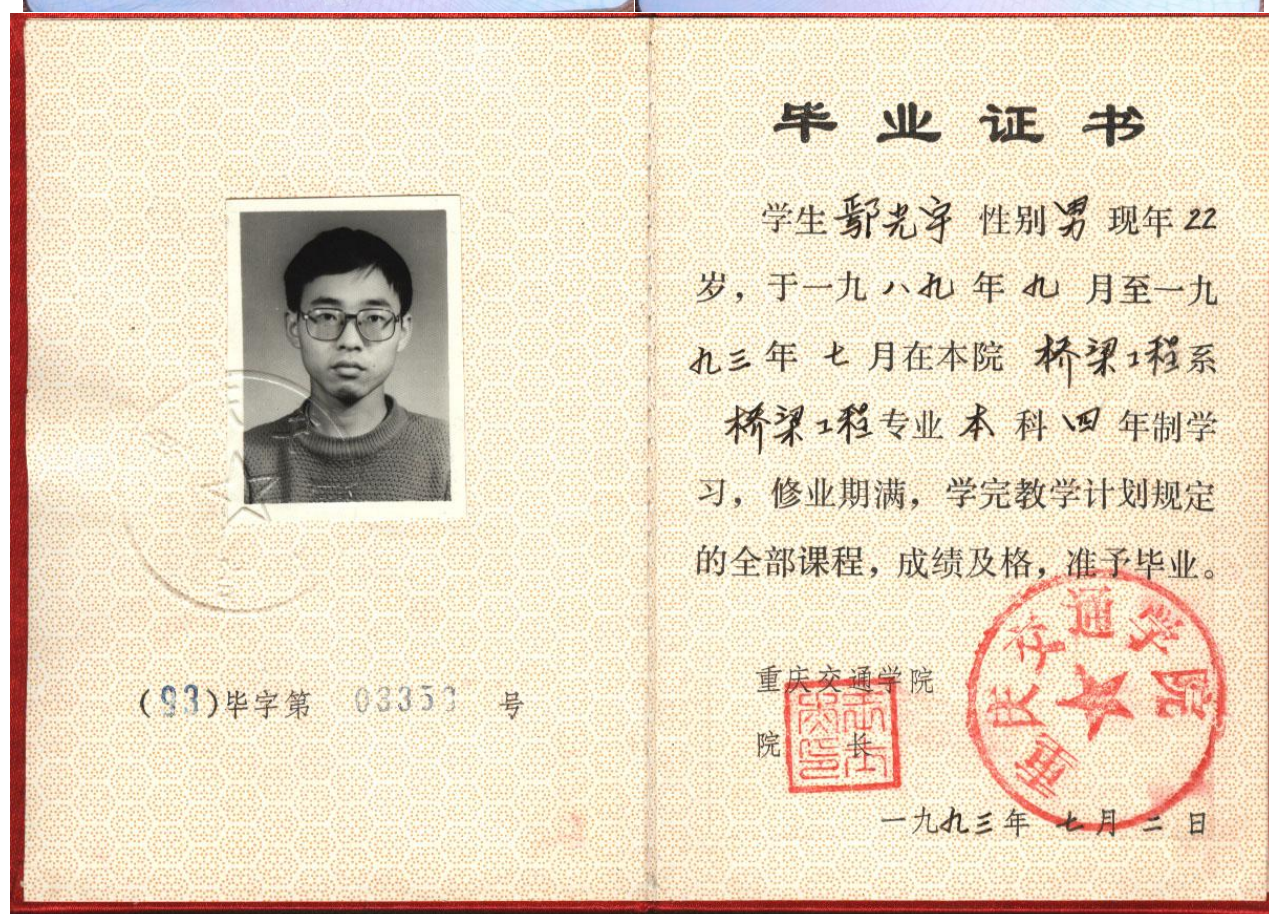 (93)毕字第 03353 号
毕业证书
学生鄢光宇 性别男 现年22
岁，于一九八九年九月至一九
九三年七月在本院 桥梁工程系
桥梁工程专业本科四年制学
习，修业期满，学完教学计划规定
的全部课程，成绩及格，准予毕业。
重庆交通学院
院长
重庆交通学院
一九九三年七月二日